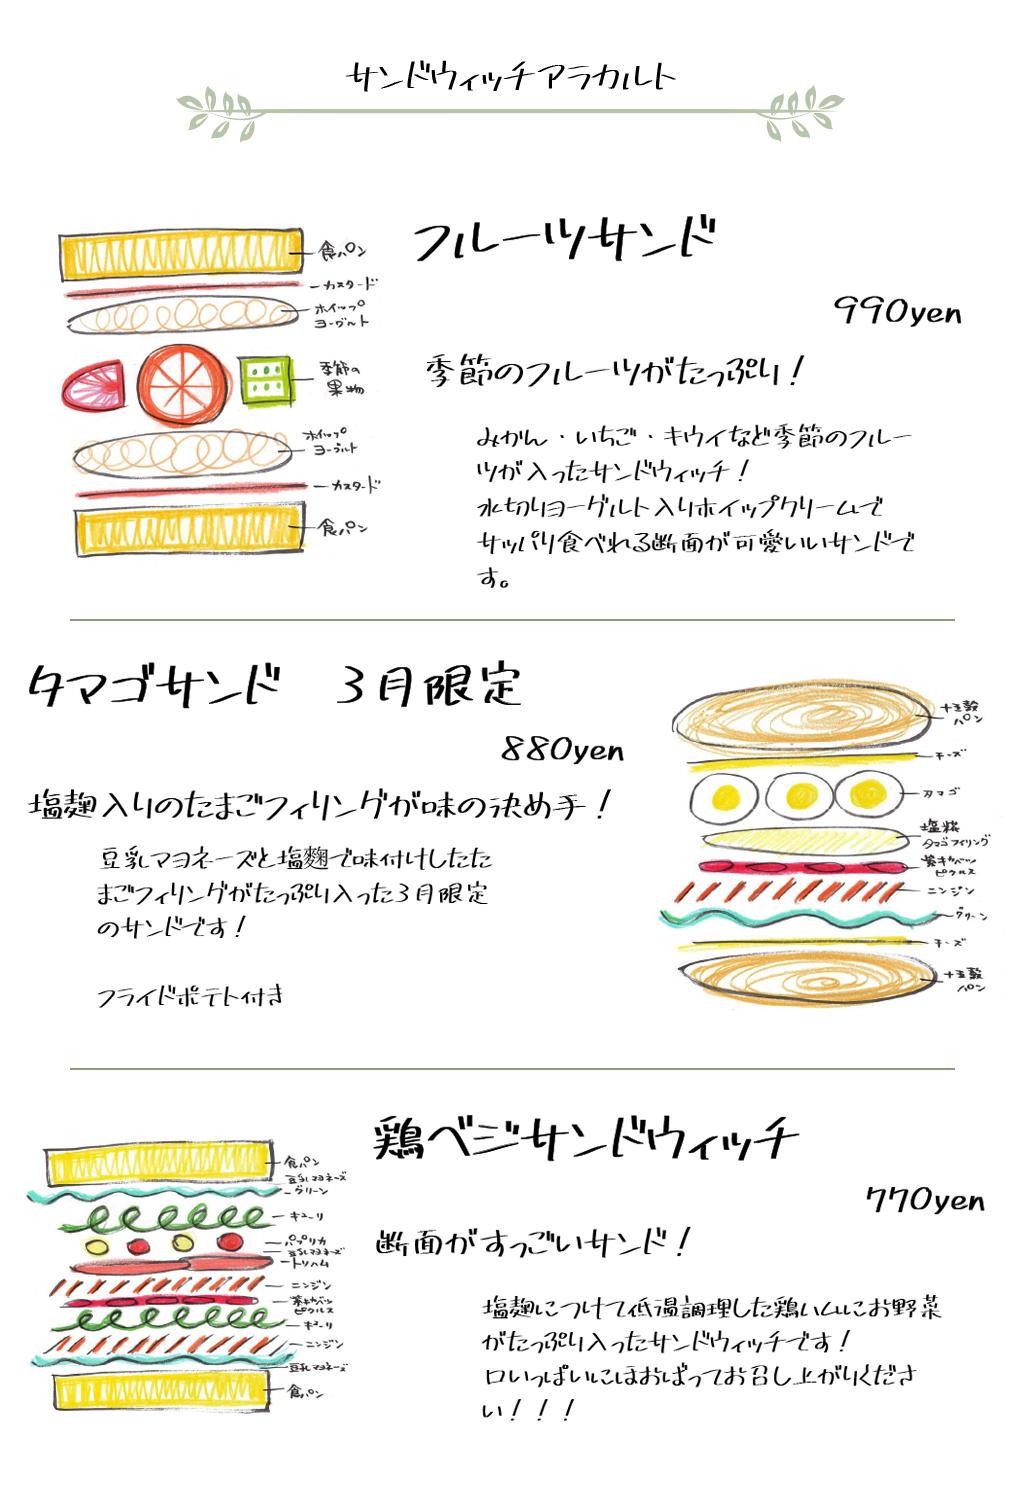 サンドウィッチアラカルト
フルーツサンド
990yen
季節のフルーツがたっぷり！
みかん・いちご・キウイなど季節のフルー
ツが入ったサンドウィッチ！
水切りヨーグルト入りホイップクリームで
サッパリ食べれる断面が可愛いいサンドで
す。
食パン
カスタード
ホイップ
ヨーグルト
季節の
果物
ホイップ
ヨーグルト
カスタード
食パン
タマゴサンド　3月限定
880yen
塩麹入りのたまごフィリングが味の決め手！
豆乳マヨネーズと塩麴で味付けしたた
まごフィリングがたっぷり入った3月限定
のサンドです！
フライドポテト付き
十五穀
パン
チーズ
タマゴ
塩糀
タマゴフィリング
紫キャベツ
ピクルス
ニンジン
グリーン
チーズ
十五穀
パン
鶏ベジサンドウィッチ
770yen
断面がすっごいサンド！
塩麹につけて低温調理した鶏ハムにお野菜
がたっぷり入ったサンドウィッチです！
口いっぱいにほおばってお召し上がりくださ
い！！！
食パン
豆乳マヨネーズ
グリーン
キューリ
パプリカ
豆乳マヨネーズ
トリハム
ニンジン
紫キャベツ
ピクルス
キューリ
ニンジン
豆乳マヨネーズ
食パン